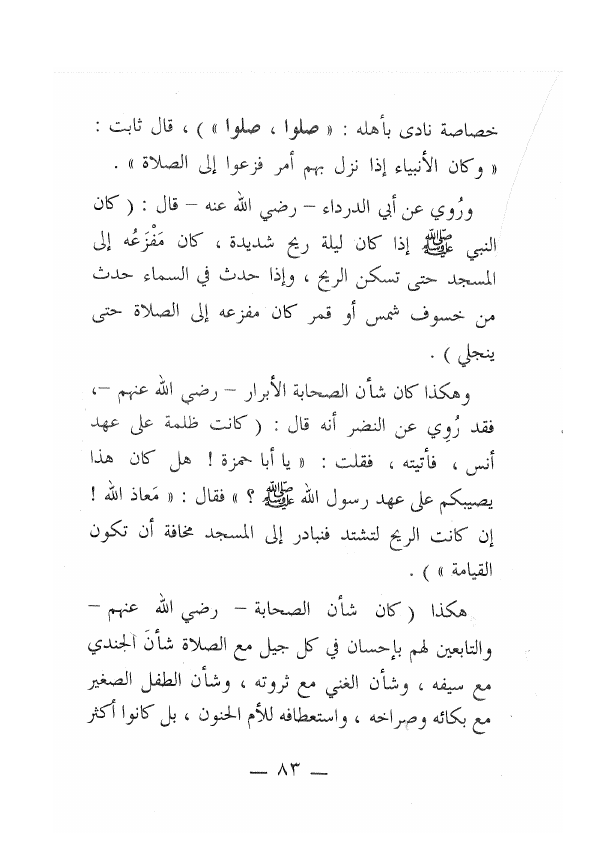 خصاصة نادى بأهله : « صلوا ، صلوا » ) ، قال ثابت :
« وكان الأنبياء إذا نزل بهم أمر فزعوا إلى الصلاة » .
ورُوي عن أبي الدرداء – رضي الله عنه – قال : ( كان
النبي ﷺ إذا كان ليلة ريح شديدة ، كان مَفْزَعُه إلى
المسجد حتى تسكن الريح ، وإذا حدث في السماء حدث
من خسوف شمس أو قمر كان مفزعه إلى الصلاة حتى
ينجلي ) .
وهكذا كان شأن الصحابة الأبرار – رضي الله عنهم –،
فقد رُوِي عن النضر أنه قال : ( كانت ظلمة على عهد
أنس ، فأتيته ، فقلت : « يا أبا حمزة ! هل كان هذا
يصيبكم على عهد رسول الله ﷺ ؟ » فقال : « مَعاذ الله !
إن كانت الريح لتشتد فنبادر إلى المسجد مخافة أن تكون
القيامة » ) .
هكذا ( كان شأن الصحابة – رضي الله عنهم –
والتابعين لهم بإحسان في كل جيل مع الصلاة شأنَ الجندي
مع سيفه ، وشأن الغني مع ثروته ، وشأن الطفل الصغير
مع بكائه وصراخه ، واستعطافه للأم الحنون ، بل كانوا أكثر
— ٨٣ —